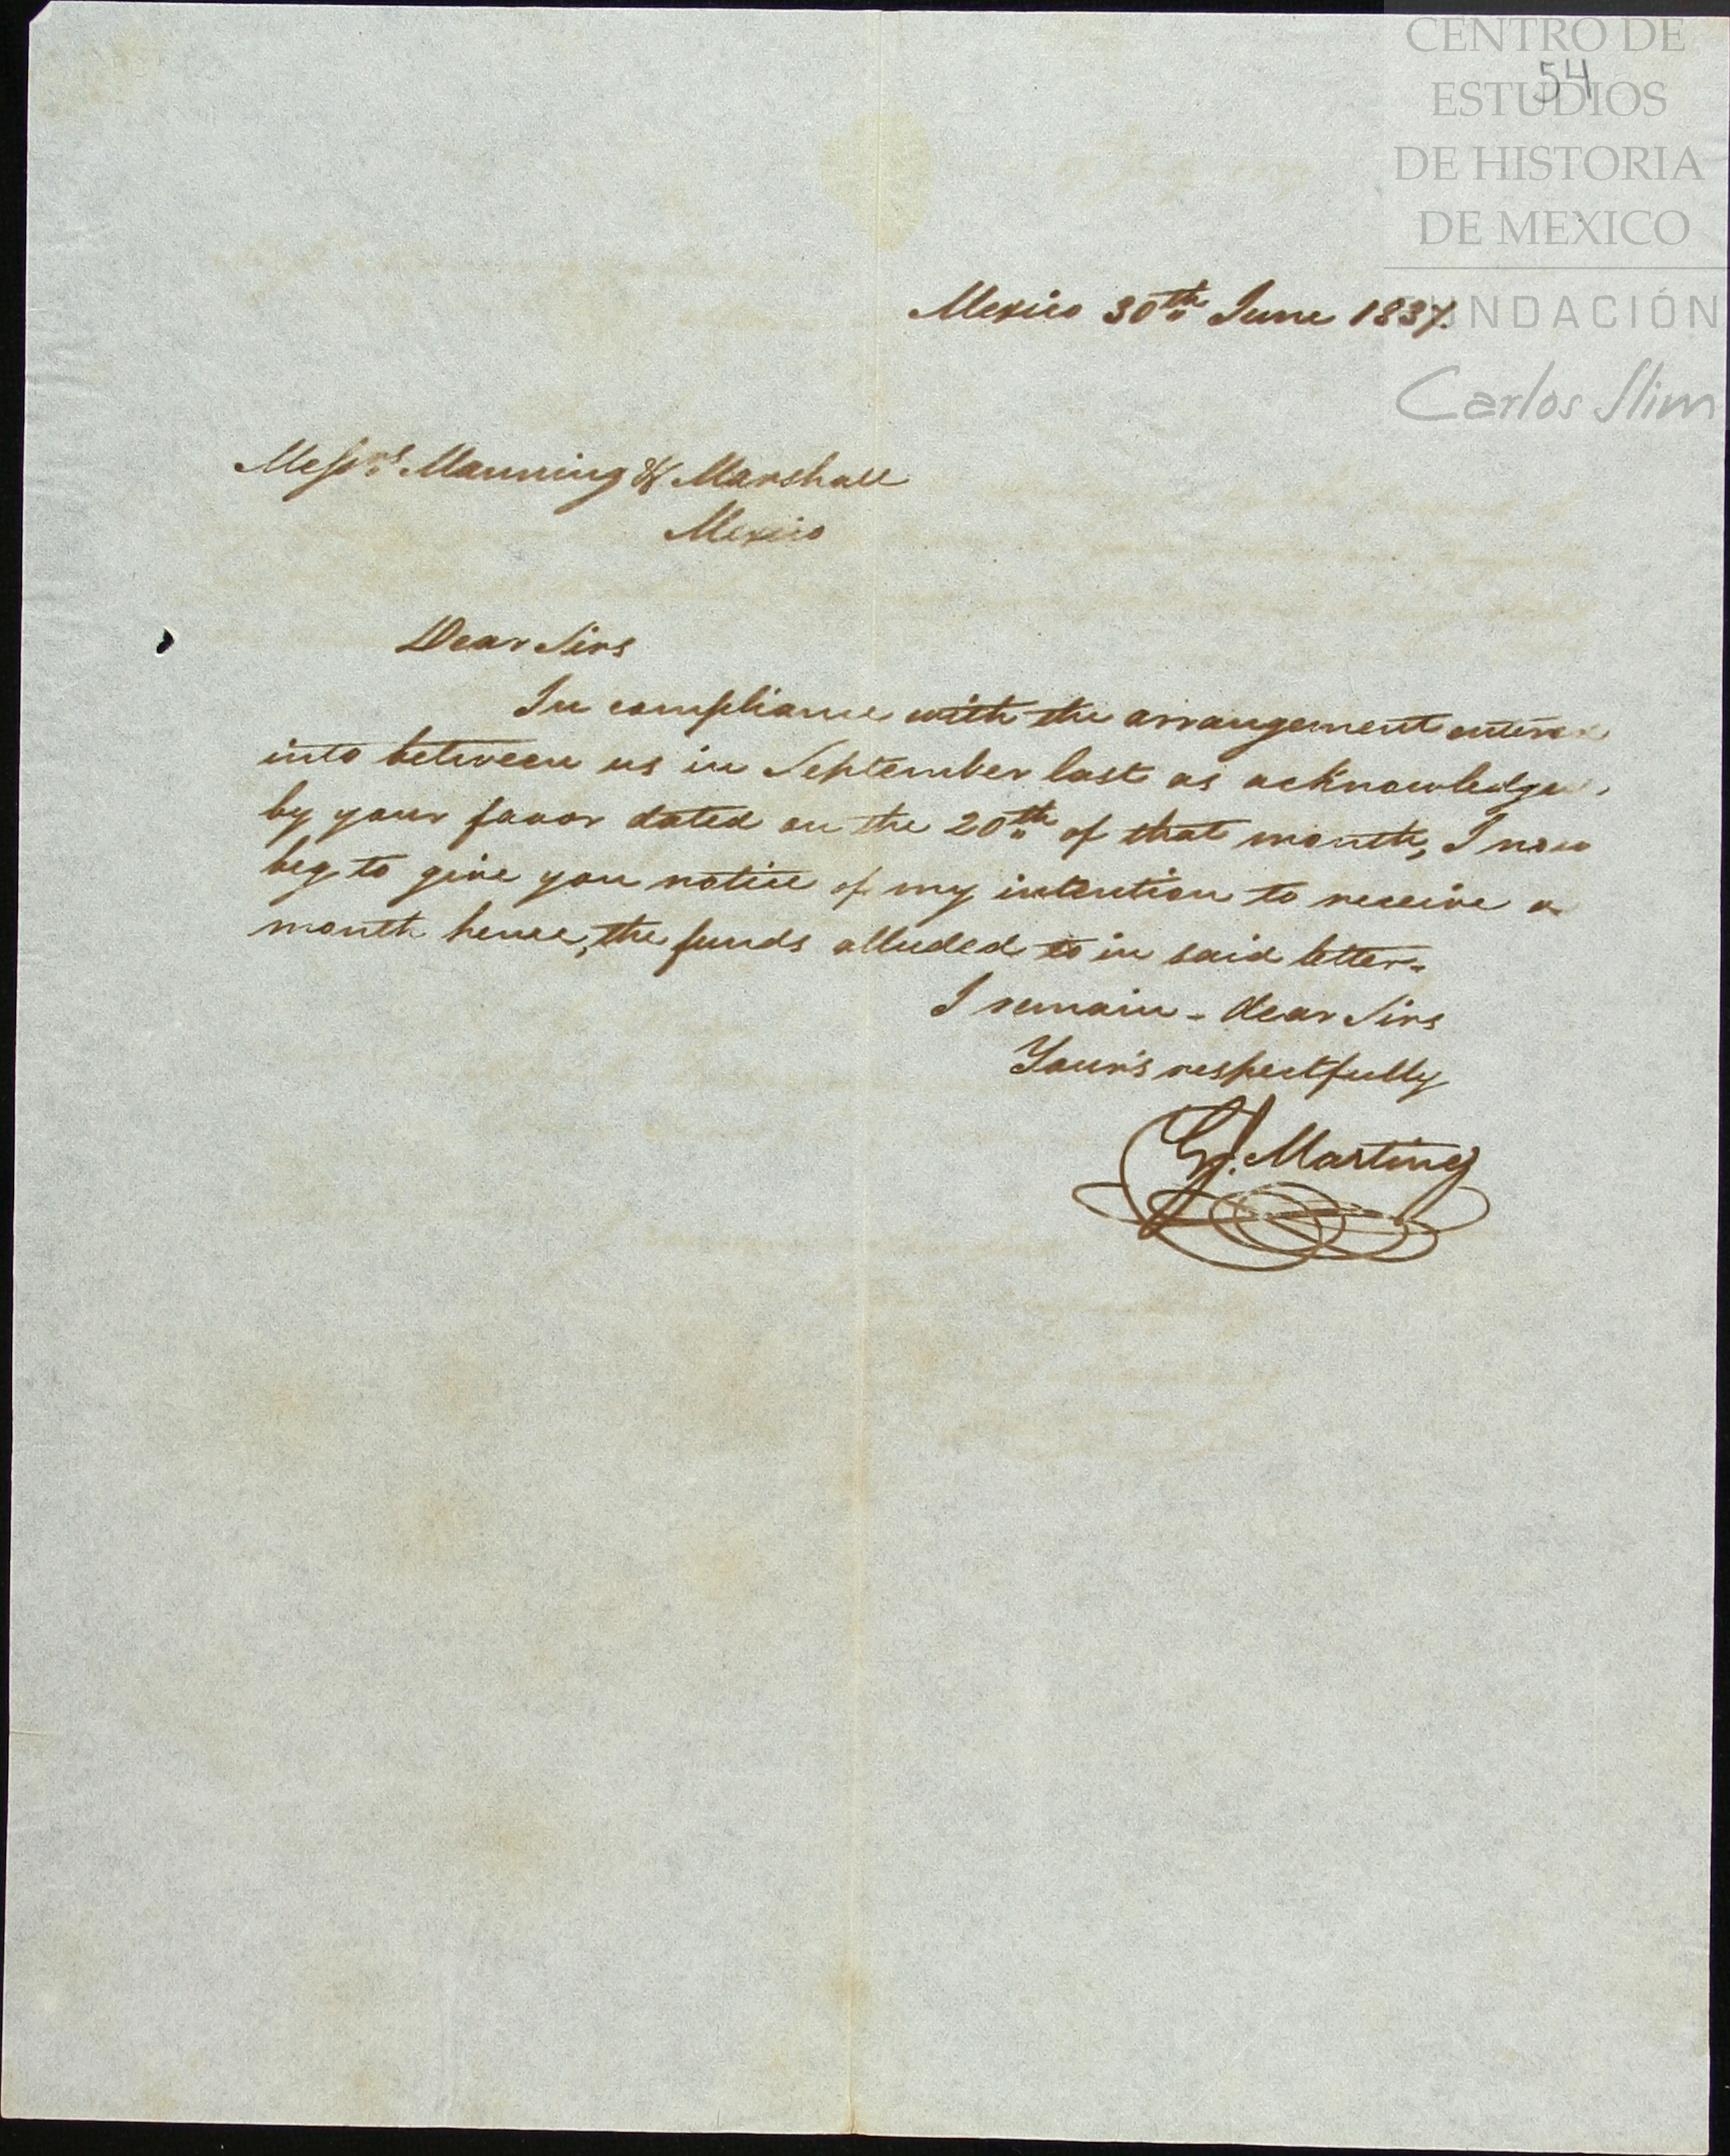 CENTRO DE
54
ESTUDIOS
DE HISTORIA
DE MEXICO
FUNDACIÓN
Carlos Slim
Mexico 30th June 1837.
Messrs Manning & Marshall
Mexico
Dear Sirs
In compliance with the arrangement entered
into between us in September last as acknowledged
by your favor dated on the 20th of that month, I now
beg to give you notice of my intention to receive a
month hence, the funds alluded to in said letter.
I remain - dear Sirs
Your's respectfully
Martinez